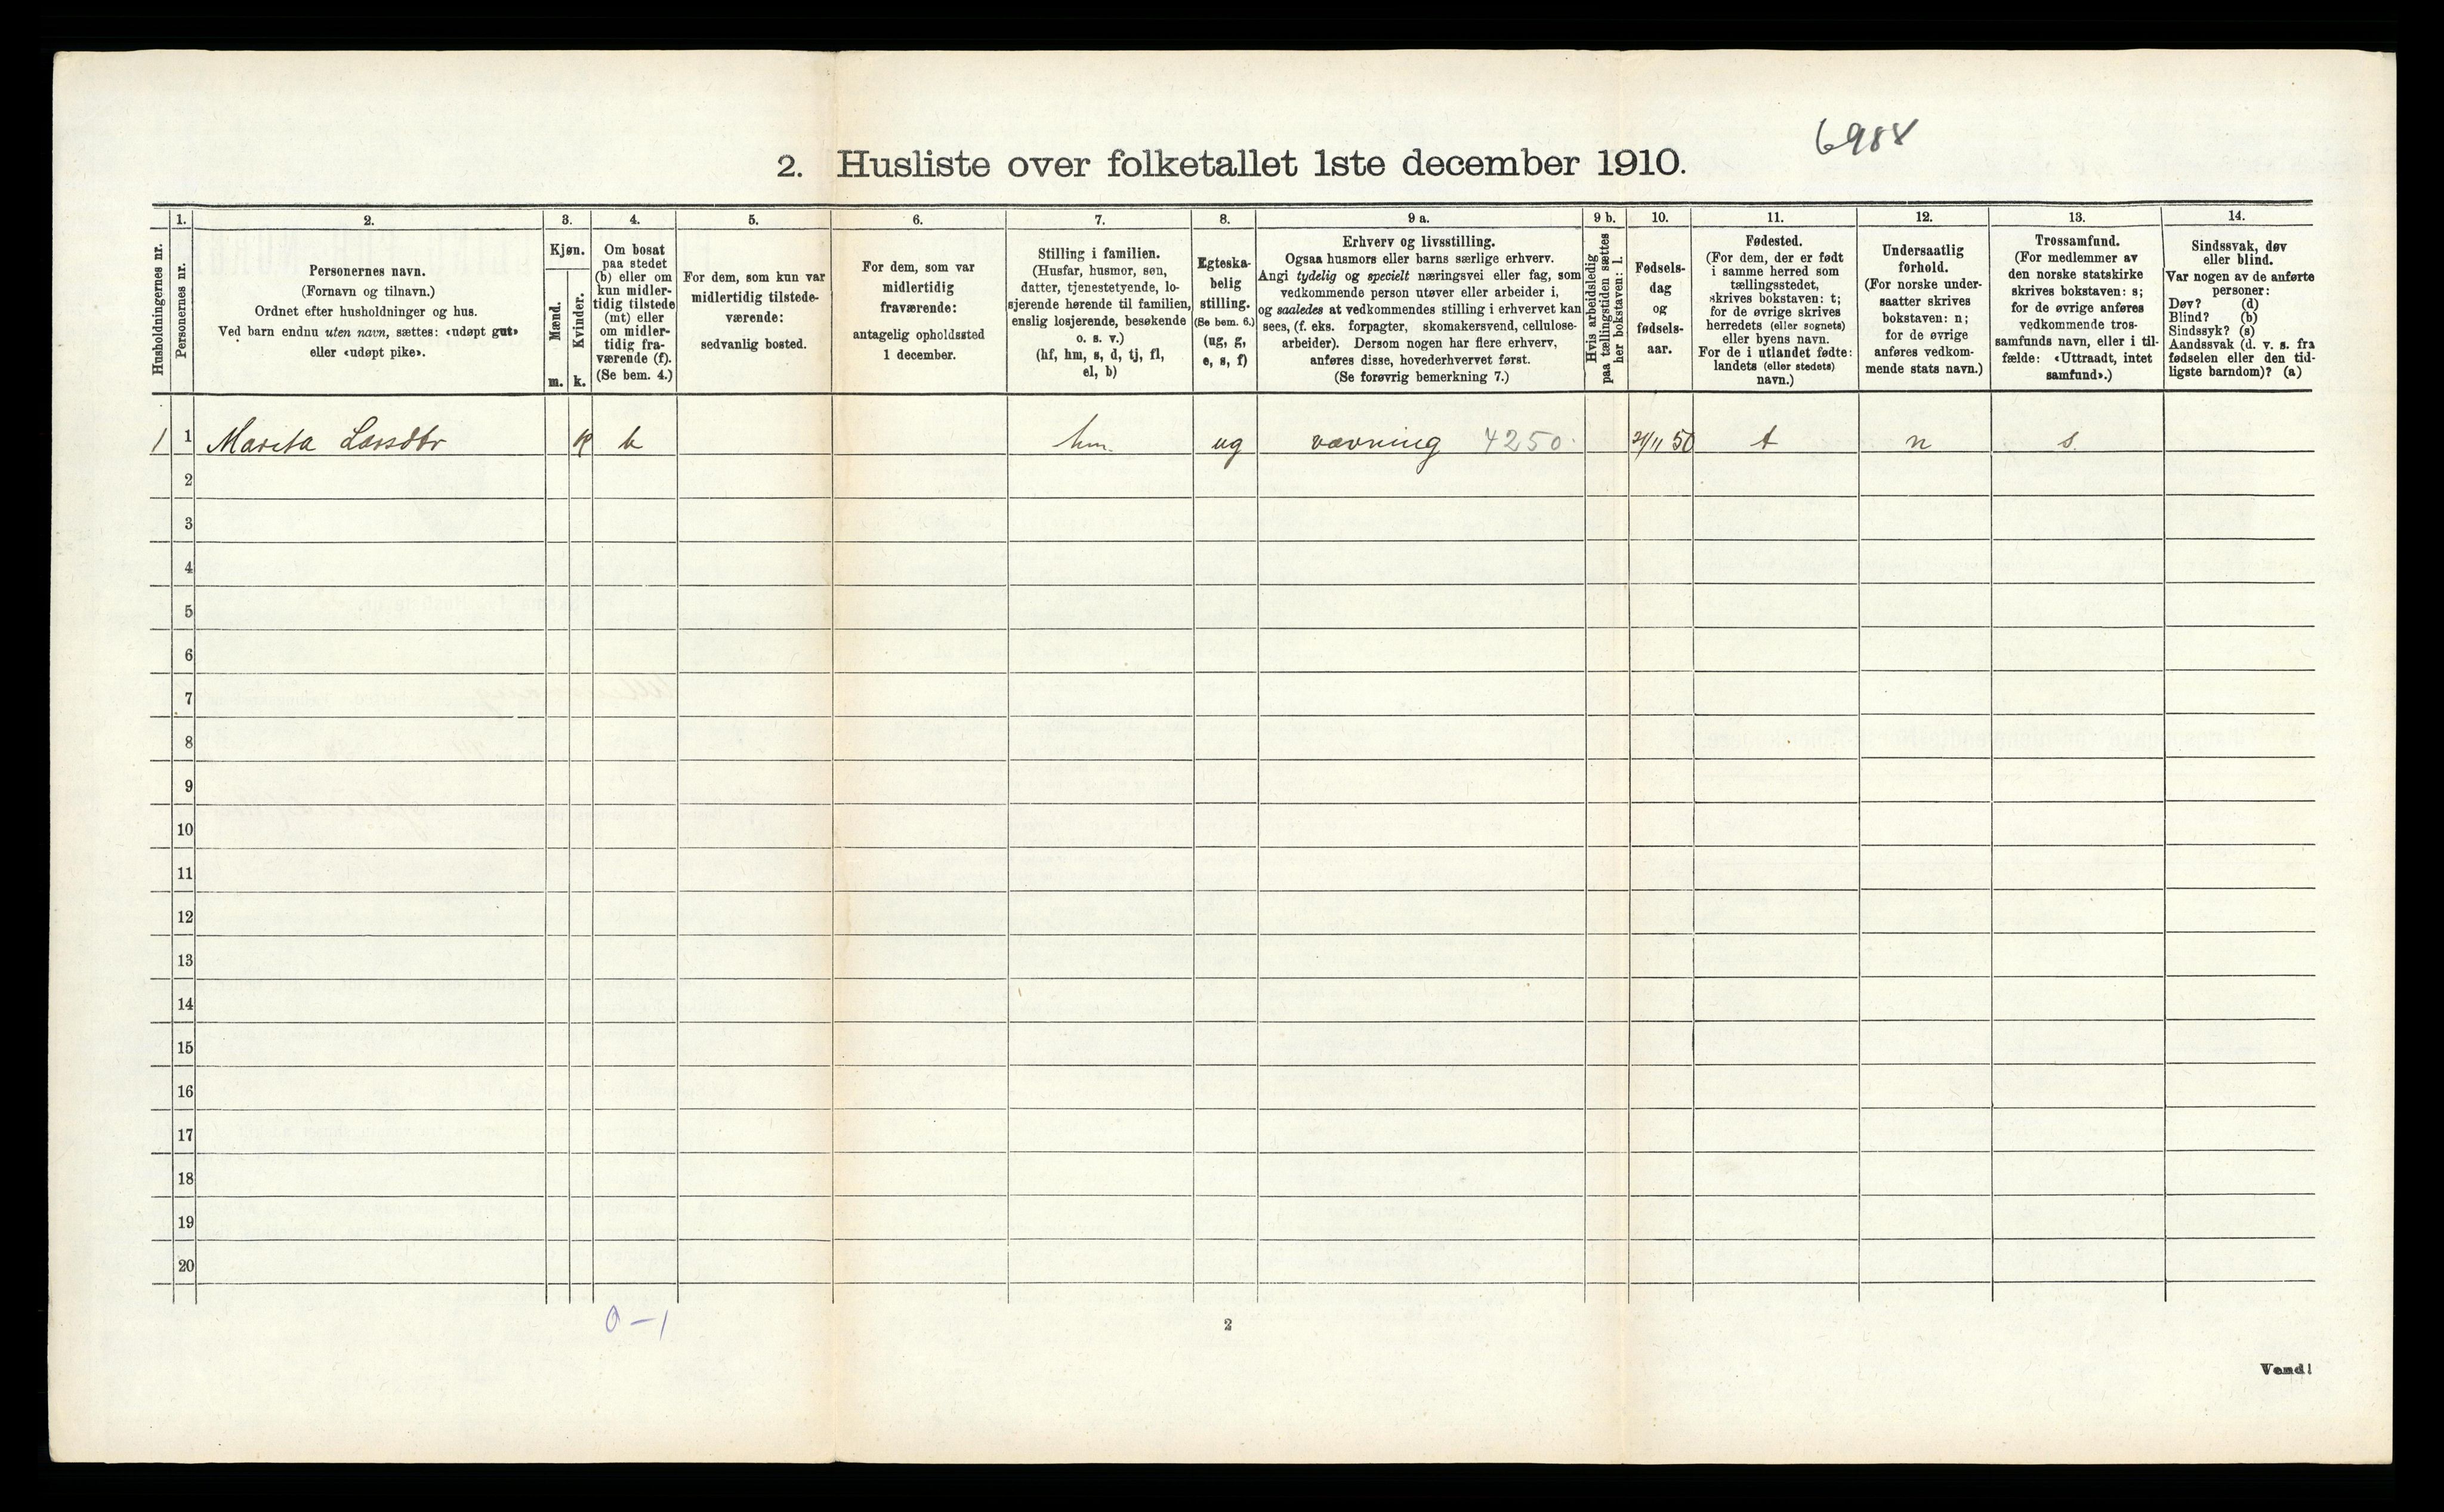 6988
2. Husliste over folketallet 1ste december 1910.
Husholdningernes nr.
1.
Personernes nr.
2.
Personernes navn.
(Fornavn og tilnavn.)
Ordnet efter husholdninger og hus.
Ved barn endnu uten navn, sættes: «udøpt gut»
eller «udøpt pike».
3.
Kjøn.
Mænd.
m.
Kvinder.
k.
4.
Om bosat
paa stedet
(b) eller om
kun midler-
tidig tilstede
(mt) eller
om midler-
tidig fra-
værende (f).
(Se bem. 4.)
5.
For dem, som kun var
midlertidig tilstede-
værende:
sedvanlig bosted.
6.
For dem, som var
midlertidig
fraværende:
antagelig opholdssted
1 december.
7.
Stilling i familien.
(Husfar, husmor, søn,
datter, tjenestetyende, lo-
sjerende hørende til familien,
enslig losjerende, besøkende
o. s. v.)
(hf, hm, s, d, tj, fl,
el, b)
8.
Egteska-
belig
stilling.
(Se bem. 6.)
(ug, g,
e, s, f)
9 a.
Erhverv og livsstilling.
Ogsaa husmors eller barns særlige erhverv.
Angi tydelig og specielt næringsvei eller fag, som
vedkommende person utøver eller arbeider i,
og saaledes at vedkommendes stilling i erhvervet kan
sees, (f. eks. forpagter, skomakersvend, cellulose-
arbeider). Dersom nogen har flere erhverv,
anføres disse, hovederhvervet først.
(Se forøvrig bemerkning 7.)
9 b.
Hvis arbeidsledig
paa tællingstiden sættes
her bokstaven: l.
10.
Fødsels-
dag
og
fødsels-
aar.
11.
Fødested.
(For dem, der er født
i samme herred som
tællingsstedet,
skrives bokstaven: t;
for de øvrige skrives
herredets (eller sognets)
eller byens navn.
For de i utlandet fødte:
landets (eller stedets)
navn.)
12.
Undersaatlig
forhold.
(For norske under-
saatter skrives
bokstaven: n;
for de øvrige
anføres vedkom-
mende stats navn.)
13.
Trossamfund.
(For medlemmer av
den norske statskirke
skrives bokstaven: s;
for de øvrige anføres
vedkommende tros-
samfunds navn, eller i til-
fælde: «Uttraadt, intet
samfund».)
14.
Sindssvak, døv
eller blind.
Var nogen av de anførte
personer:
Døv? (d)
Blind? (b)
Sindssyk? (s)
Aandssvak (d. v. s. fra
fødselen eller den tid-
ligste barndom)? (a)
1 1 Marita Larsdtr k b hm. ug vævning 4250 21/11 50 t n s.
2
3
4
5
6
7
8
9
10
11
12
13
14
15
16
17
18
19
20
0 – 1
2
Vend!